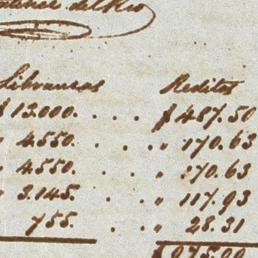 del Rio
Libranzas Reditos
$13.000. . . . $487.50
" 4.550. . . . " 170.63
" 4.550. . . . " 170.63
" 3.145. . . . " 117.93
" 755. . . . " 28.31
$975.00